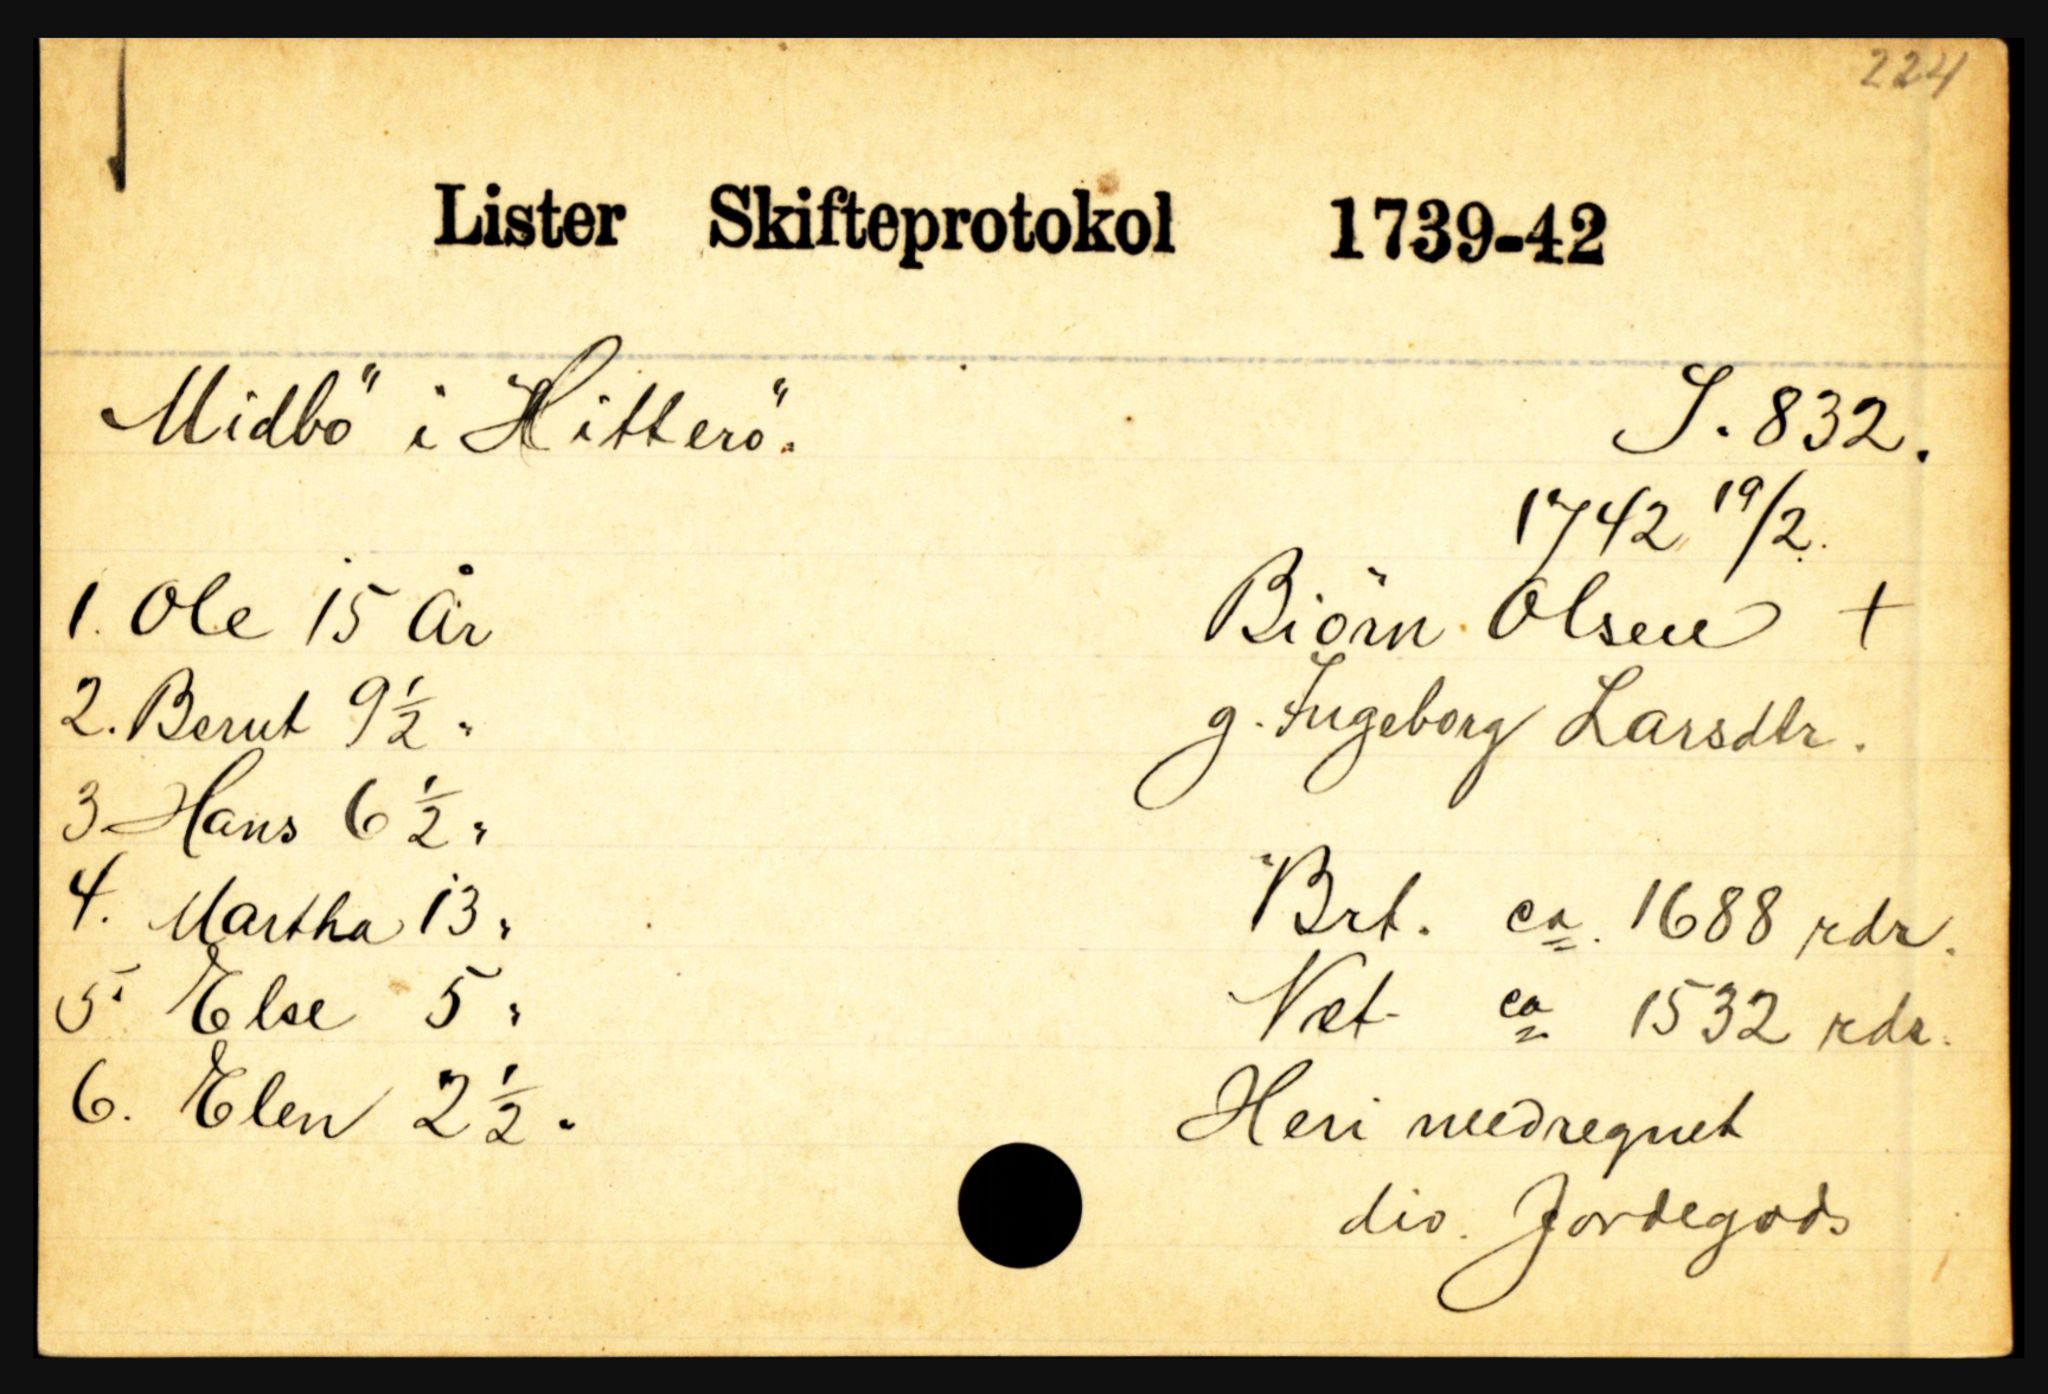 224
Lister Skifteprotokol 1739-42
Midbö i Hitterö.
S. 832.
1742 19/2.
Biörn Olsen +
g. Ingeborg Larsdtr.
1. Ole 15 År
2. Berut 9 1/2 "
3 Hans 6 1/2 "
4. Martha 13 "
5. Else 5 "
6. Elen 2 1/2 "
Brt. ca. 1688 rdr.
Net ca 1532 rdr.
Heri medregnet
div. Jordegods